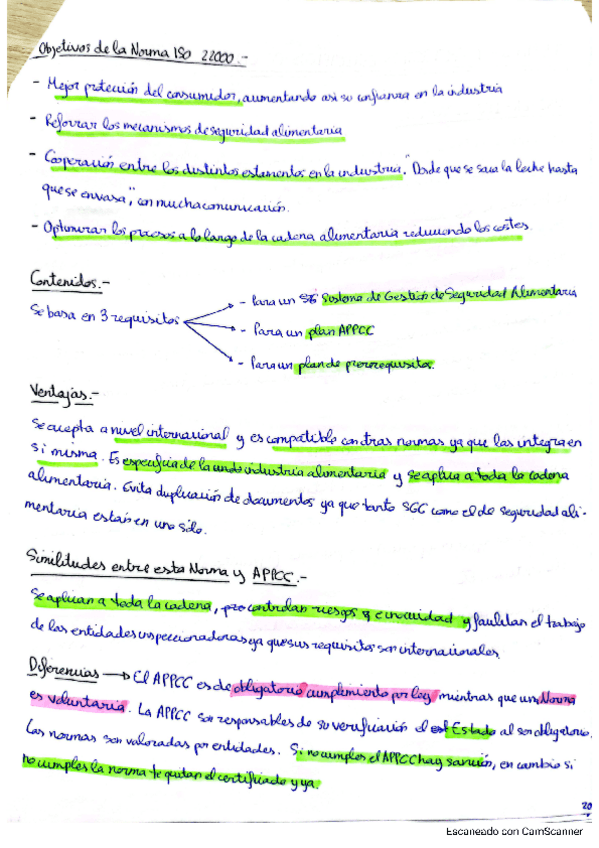 Objetivos de la Norma ISO 22000.-
- Mejor protección del consumidor, aumentando asi su confianza en la industria
- Reforzar los mecanismos de seguridad alimentaria
- Cooperación entre los distintos estamentos en la industria. "Desde que se saca la leche hasta
que se envasa", con mucha comunicación.
- Optimizar los procesos a lo largo de la cadena alimentaria reduciendo los costes.
Contenidos.-
Se basa en 3 requisitos
- Para un Sistema de Gestión de Seguridad Alimentaria
- Para un plan APPCC
- Para un plan de prerrequisitos.
Ventajas.-
Se acepta a nivel internacional y es compatible con otras normas ya que las integra en
si misma. Es especifica de la industria alimentaria y se aplica a toda la cadena
alimentaria. Evita duplicación de documentos ya que tanto SGC como el de seguridad ali-
mentaria están en uno sólo.
Similitudes entre esta Norma y APPCC.-
Se aplican a toda la cadena, controlan riesgos e inocuidad y facilitan el trabajo
de las entidades inspeccionadoras ya que sus requisitos son internacionales.
Diferencias → El APPCC es de obligatorio cumplimiento por ley mientras que un Norma
es voluntaria. La APPCC son responsables de su verificación el Estado al ser obligatorio.
Las normas son valoradas por entidades. Si no cumples el APPCC hay sanción, en cambio si
no cumples la norma te quitan el certificado y ya.
20
Escaneado con CamScanner